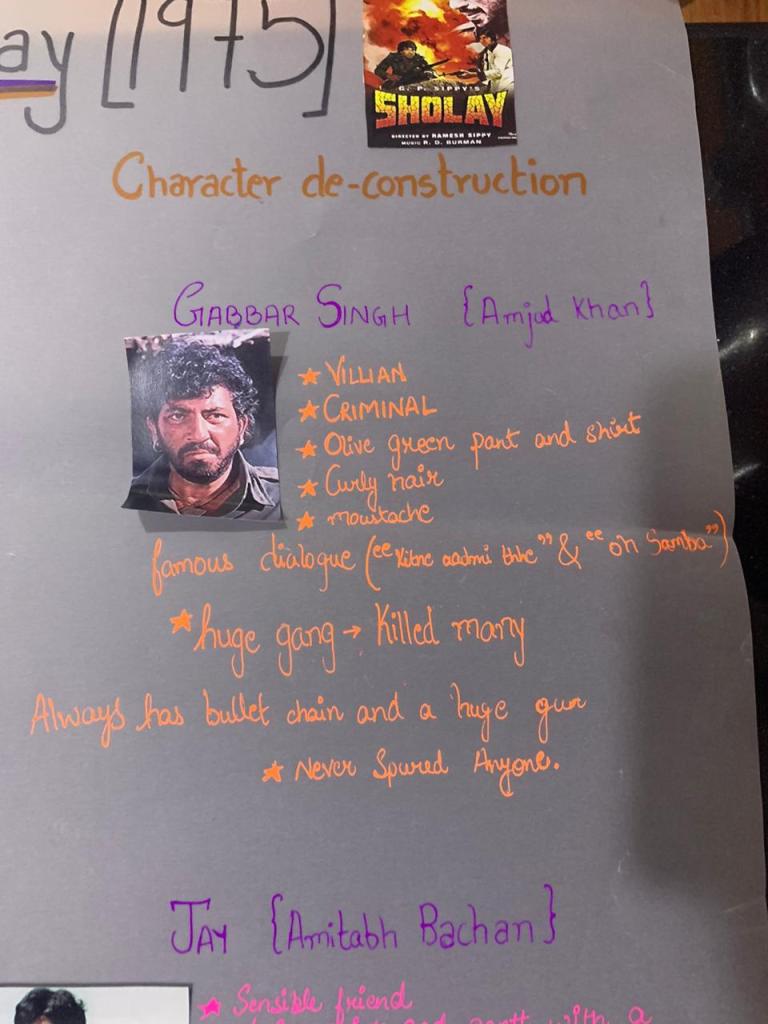 ay [1975]
G. P. SIPPY'S
SHOLAY
DIRECTED BY RAMESH SIPPY
MUSIC R. D. BURMAN
Character de-construction
GABBAR SINGH {Amjad Khan}
★ VILLIAN
★ CRIMINAL
★ Olive green pant and shirt
★ Curly hair
★ moustache
famous dialogue ("Kitne aadmi thhe" & "oh Samba")
★ huge gang → Killed many
Always has bullet chain and a huge gun
★ Never Spured Anyone.
JAY {Amitabh Bachan}
★ Sensible friend
with a